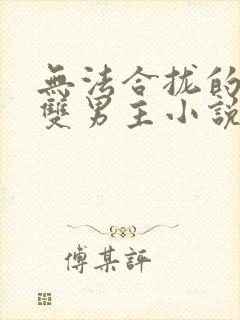 無法合拢的
雙男主小説
傅某評